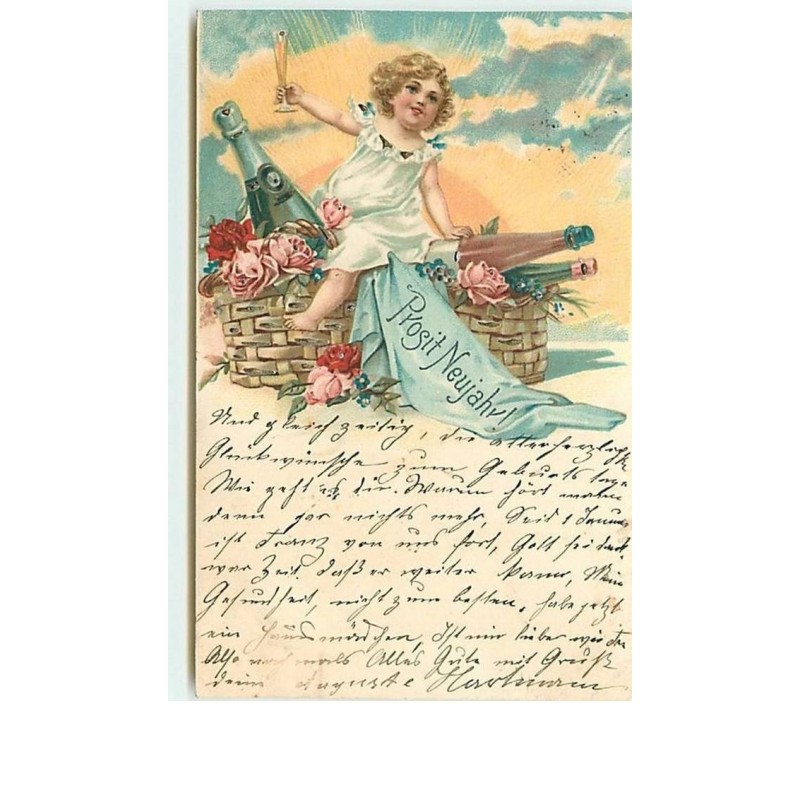 Prosit Neujahr!
Und gleich zeitig, die allerherzlich
Glückwünsche zum Geburts tage
Wie geht es dir. Warum hört man
denn gar nichts mehr, Seid 1 Januar
ist Franz von uns fort, Gott sei dank
war Zeit. daß er weiter kam, Mein
Gesundheit, nicht zum besten, habe jetzt
ein Haus mädchen, Ist mir lieber wie
Also noch mals Alles Gute mit Gruß
deine Auguste Hartmann